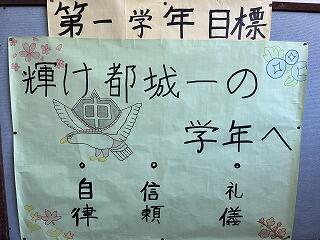 第一学年目標
輝け都城一の
学年へ
中
・礼儀
・信頼
・自律